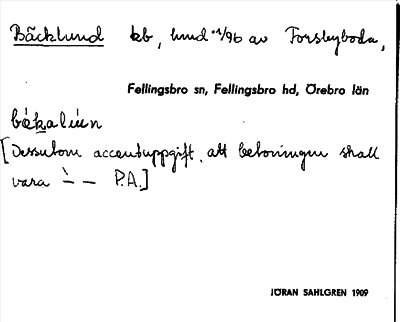 Bäcklund kb, hmd 1/96 av Forsbyboda,
Fellingsbro sn, Fellingsbro hd, Örebro län
bèkalún
[Dessutom accentuppgift, att betoningen skall
vara – – P.A.]
JÖRAN SAHLGREN 1909